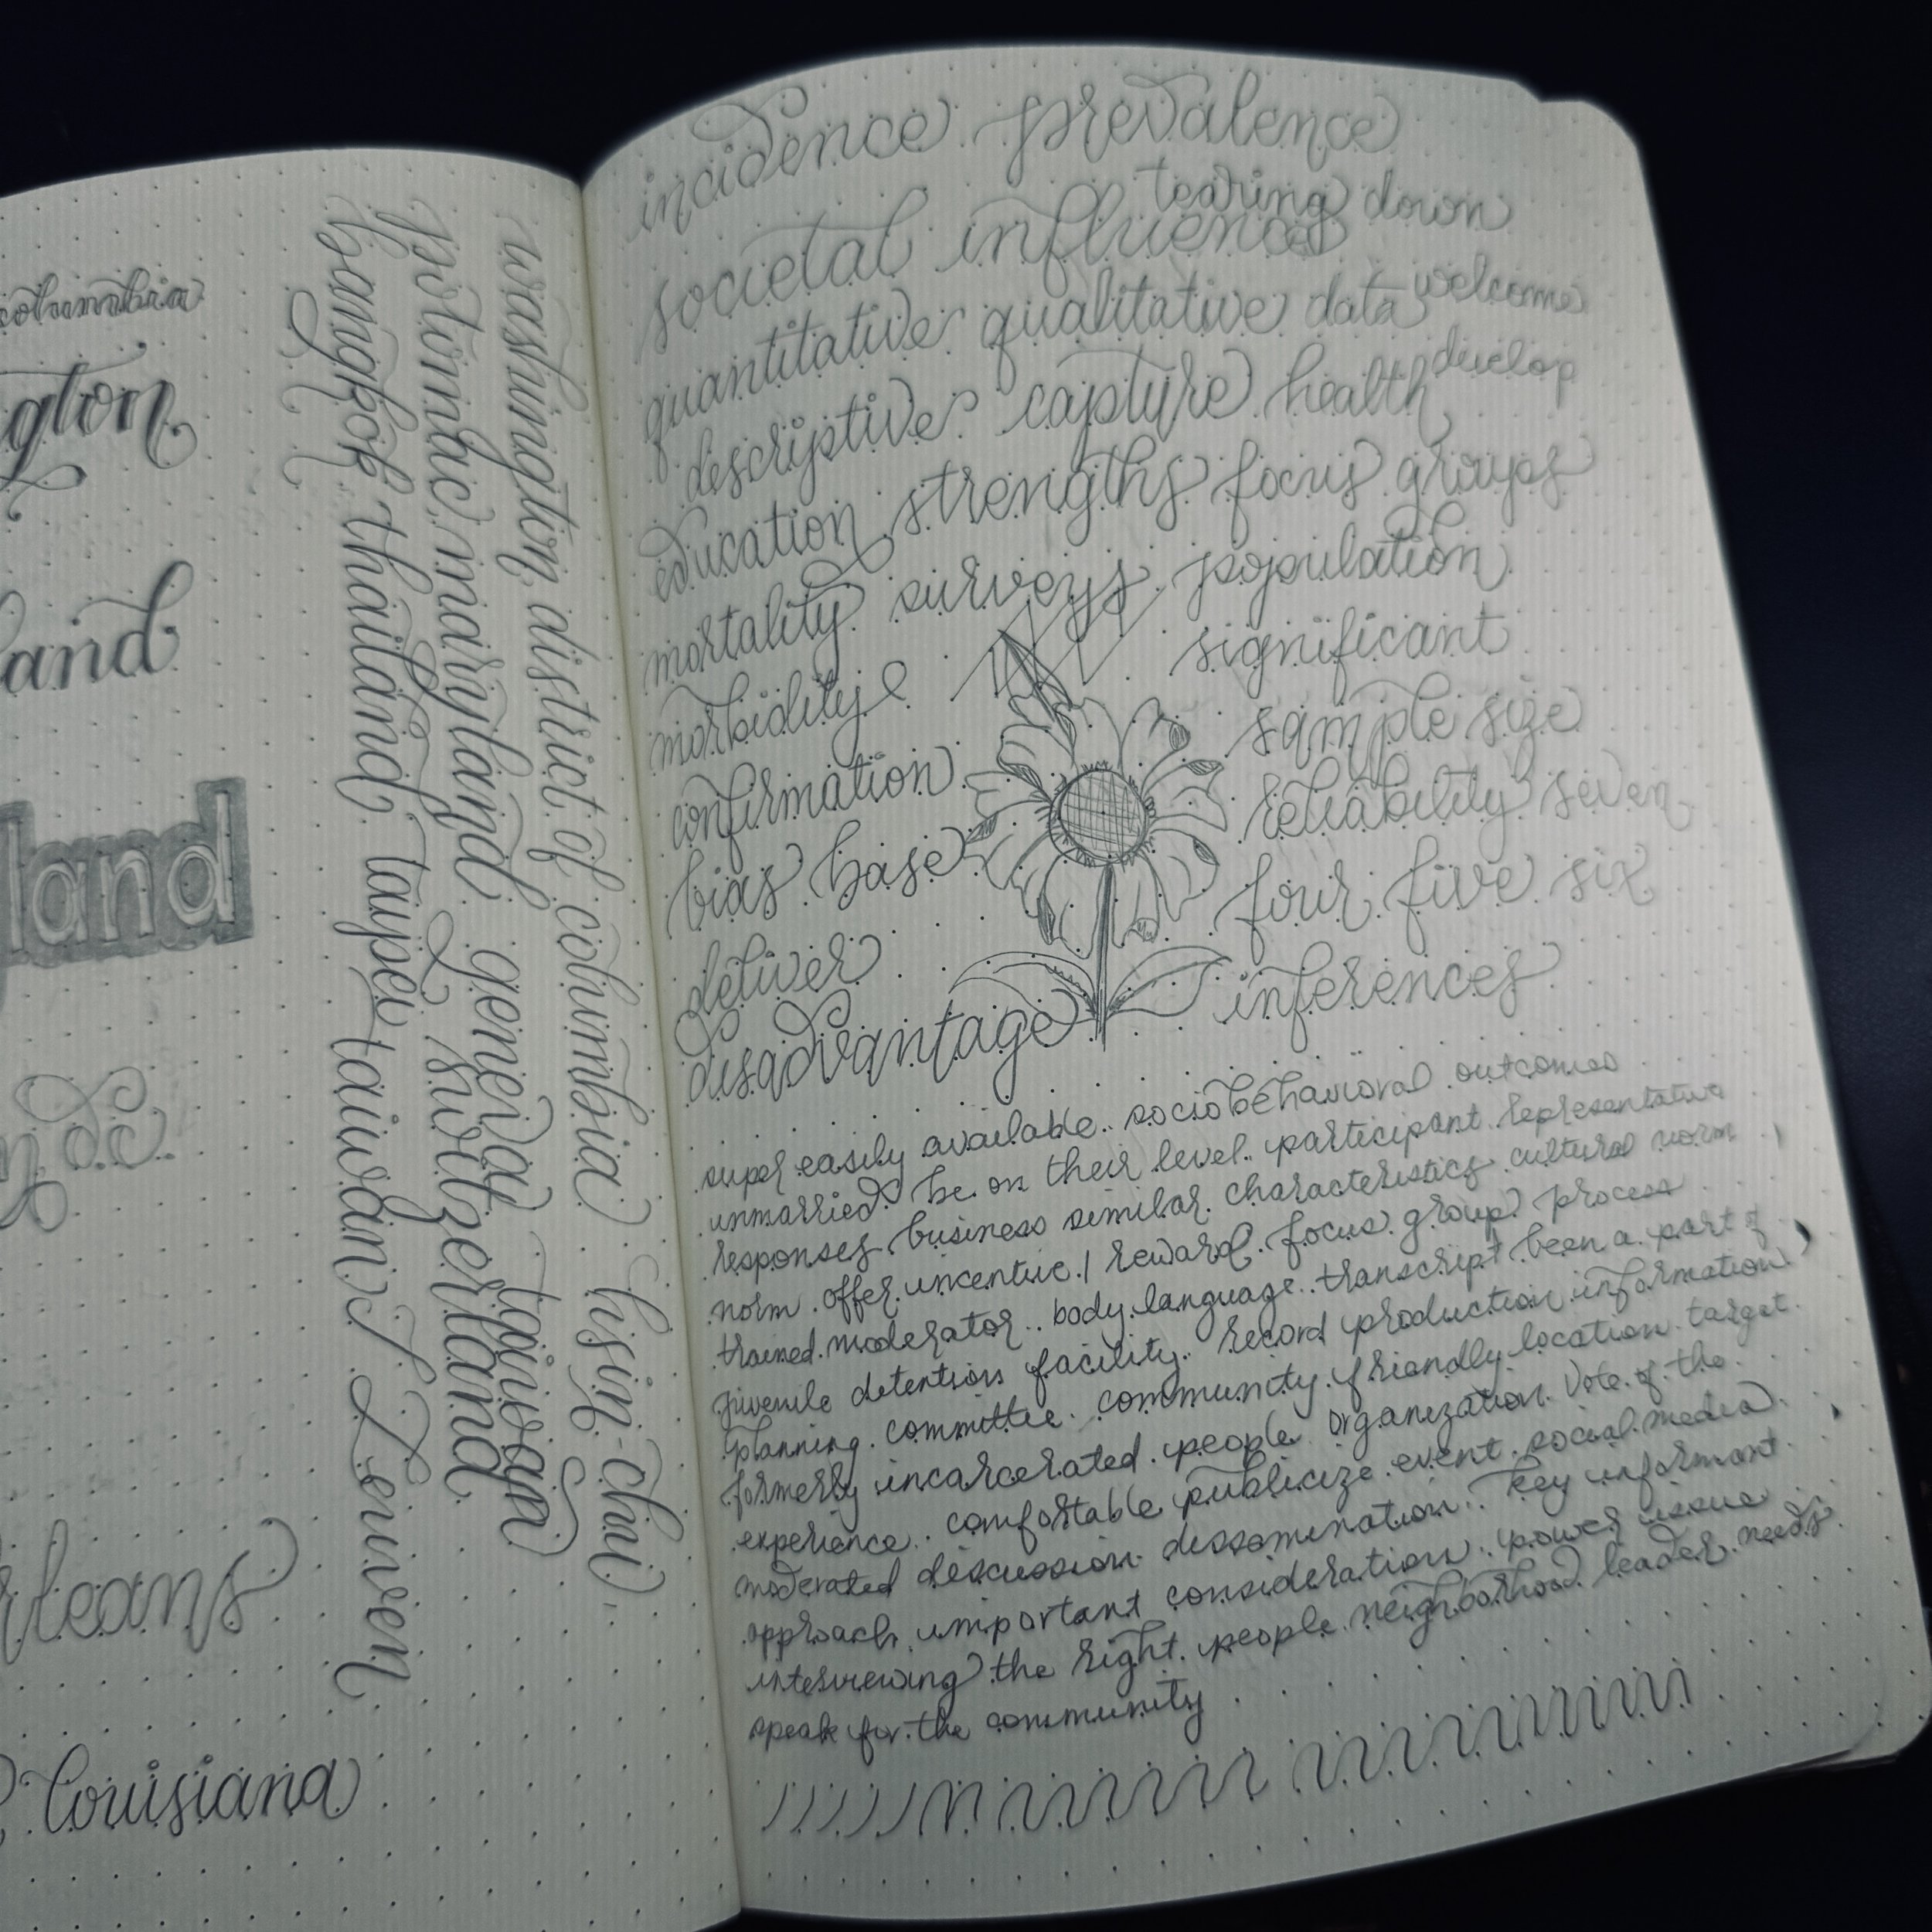 columbia
gton
land
land
n dc
rleans
, louisiana
washington, district of columbia hsin-chu
potomac, maryland geneva, switzerland taiwan
bangkok thailand taipei taiwan Leuven
incidence prevalence
tearing down
societal influences
quantitative qualitative data welcome
descriptive capture health develop
education strengths focus groups
mortality surveys population
morbidity significant
confirmation sample size
bias base reliability seven
deliver four five six
disadvantage inferences
super easily available sociobehavioral outcomes
unmarried be on their level participant representative
responses business similar characteristics cultural norm
norm offer incentive / reward focus group process
trained moderator body language transcript been a part of
juvenile detention facility record production information
planning committee community friendly location target
formerly incarcerated people organization Vote of the
experience comfortable publicize event social media
moderated discussion dissemination key informant
approach important consideration power issue
interviewing the right people neighborhood leader needs
speak for the community